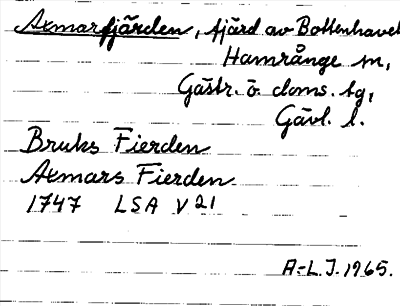 Axmarfjärden, fjärd av Bottenhavet
Hamrånge sn,
Gästr. ö. doms. tg,
Gävl. l.
Bruks Fierden
Axmars Fierden
1747 LSA V 21
A.-L.J. 1965.